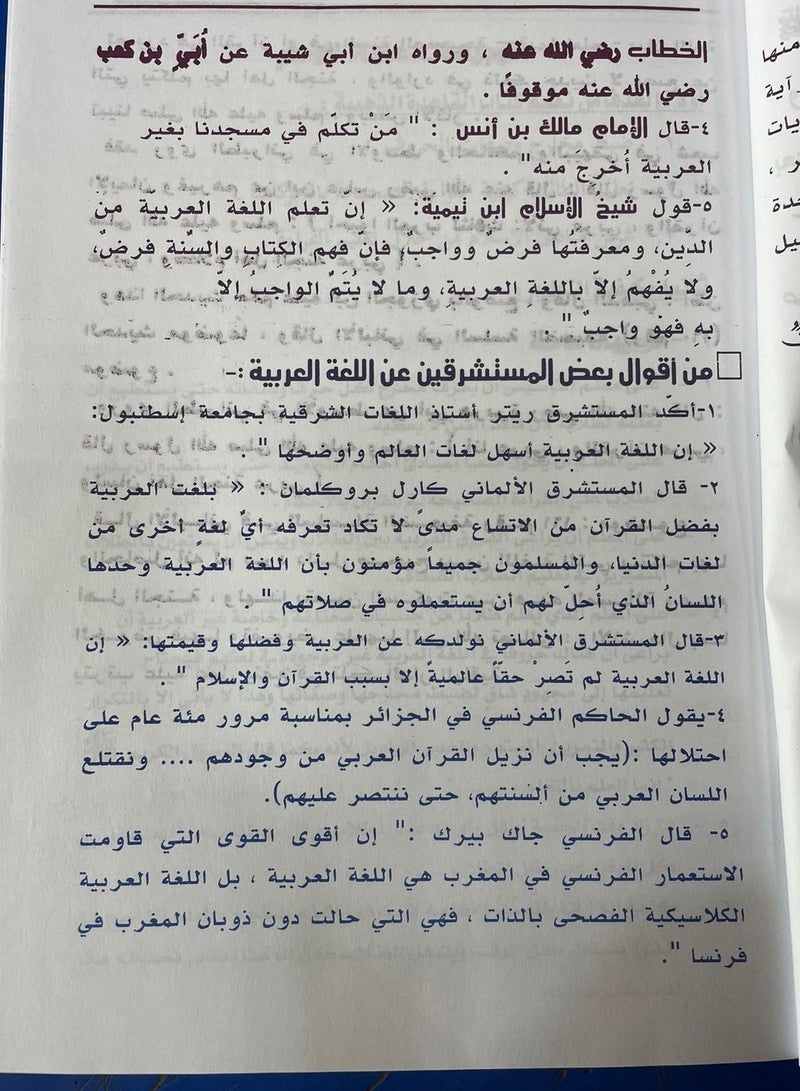 الخطاب رضي الله عنه ، ورواه ابن أبي شيبة عن أُبَيِّ بن كعب
رضي الله عنه موقوفًا .
٤-قال الإمام مالك بن أنس : " مَنْ تكلّم في مسجدنا بغير
العربية أُخرِجَ منه" .
٥-قول شيخُ الإسلام ابن تيمية: « إنّ تعلم اللغة العربية من
الدِّين، ومعرفتُها فرضٌ وواجبٌ، فإنّ فهم الكتابِ والسنّةِ فرضٌ،
ولا يُفْهَمُ إلاّ باللغةِ العربيةِ، وما لا يُتَمُّ الواجبُ إلاّ
بهِ فهو واجبٌ " .
□ من أقوال بعض المستشرقين عن اللغة العربية :-
١-أكّد المستشرق ريتر أستاذ اللغات الشرقية بجامعة إسطنبول:
« إن اللغة العربية أسهل لغات العالم وأوضحها " .
٢- قال المستشرق الألماني كارل بروكلمان : « بلغت العربية
بفضل القرآن من الاتساع مدىً لا تكاد تعرفه أيُّ لغةٍ أخرى من
لغات الدنيا، والمسلمون جميعاً مؤمنون بأن اللغة العربية وحدها
اللسانُ الذي أُحِلّ لهم أن يستعملوه في صلاتهم " .
٣-قال المستشرق الألماني نولدكه عن العربية وفضلها وقيمتها: « إن
اللغة العربية لم تَصِرْ حقّاً عالميةً إلا بسبب القرآن والإسلام " .
٤-يقول الحاكم الفرنسي في الجزائر بمناسبة مرور مئة عام على
احتلالها :(يجب أن نزيل القرآن العربي من وجودهم .... ونقتلع
اللسان العربي من ألسنتهم، حتى ننتصر عليهم).
٥- قال الفرنسي جاك بيرك :" إن أقوى القوى التي قاومت
الاستعمار الفرنسي في المغرب هي اللغة العربية ، بل اللغة العربية
الكلاسيكية الفصحى بالذات ، فهي التي حالت دون ذوبان المغرب في
فرنسا ".
منها
آية
يات
ر ،
حدة
يل